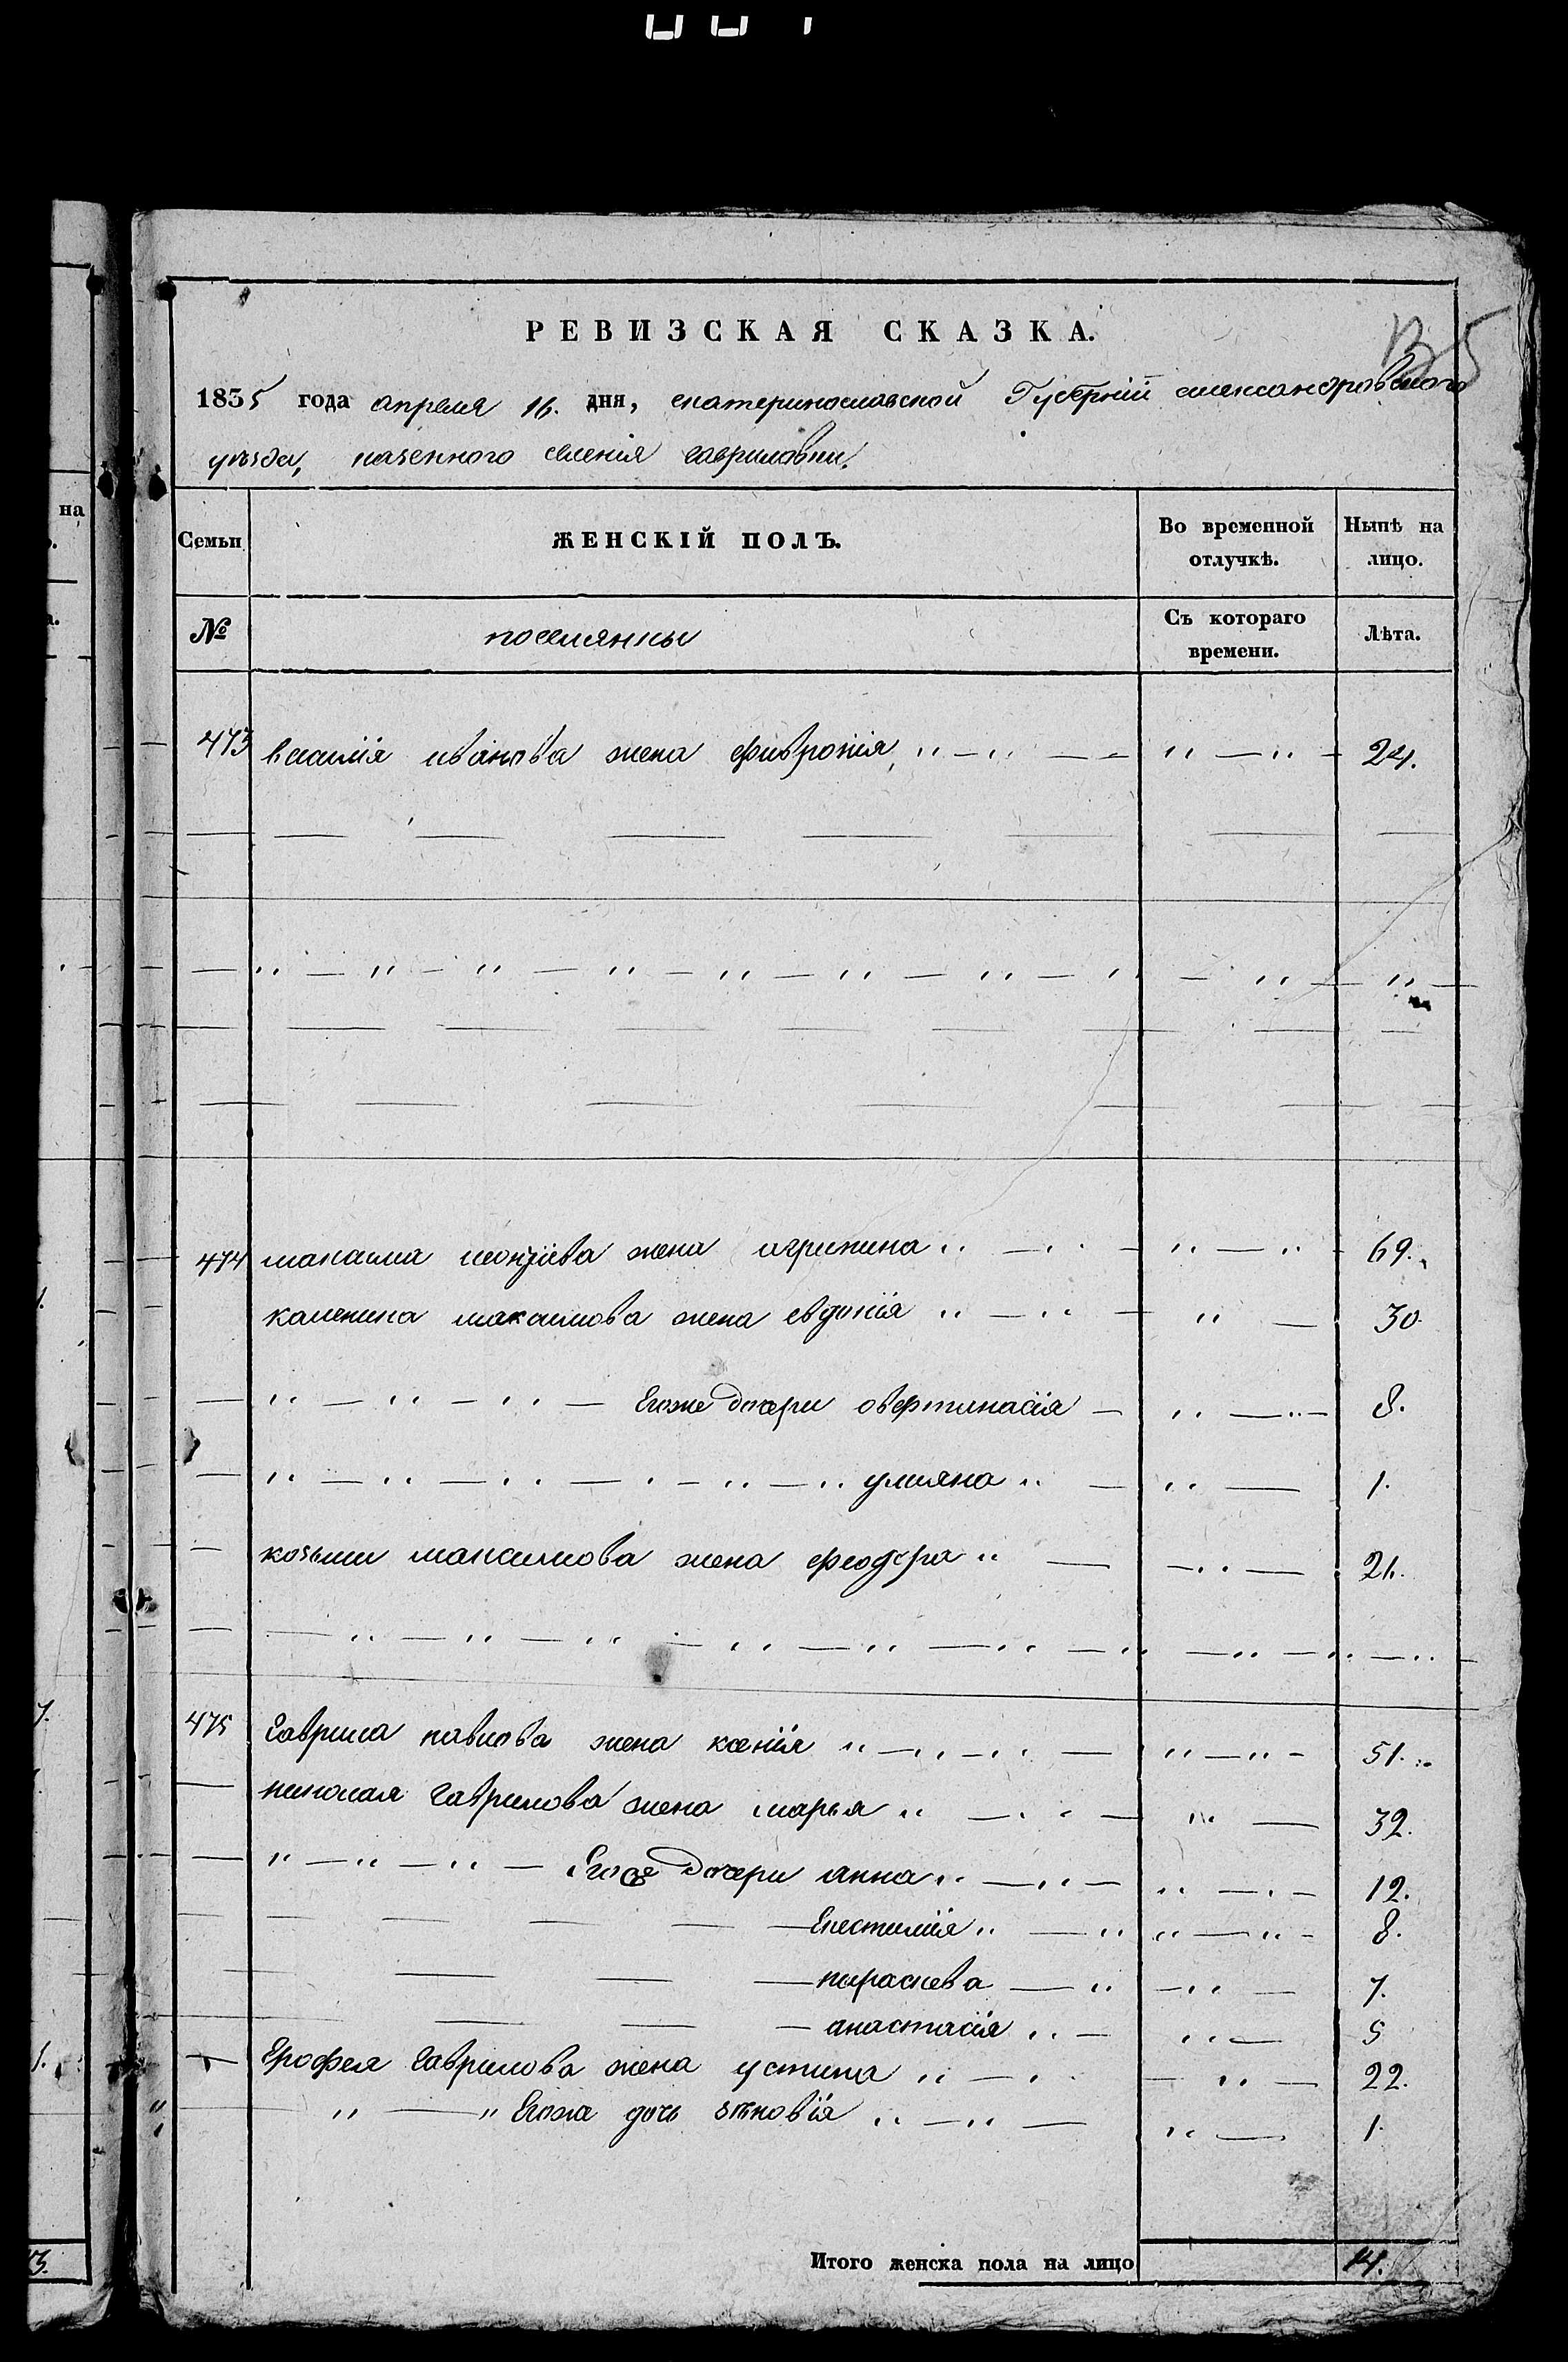 РЕВИЗСКАЯ СКАЗКА.
1835 года апреля 16. дня, екатеринославской Губерніи александровского
уѣзда, казенного селенія гавриловки.
Семьи ЖЕНСКІЙ ПОЛЪ. Во временной отлучкѣ. Нынѣ на лицо.
№ поселянки Съ котораго времени. Лѣта.
473 василія иванова жена февронія „ — „ — — „ — „ — 24.
474 максима леонтіева жена агрипина „ — „ — „ — „ - 69.
каленика максимова жена евдокія „ — „ — „ — 30.
— „ — „ — „ — Егоже дочери — „ — „ — 8.
— „ — „ — „ — „ — „ — „ улияна „ — „ — 1.
— козьми максимова жена феодора „ — — „ — 21.
475 Гаврила павлова жена ксенія „ — „ — „ — „ — „ - 51.
— николая Гаврилова жена марья „ — „ — „ — 32.
— „ — „ — „ — Егоже дочери анна „ — „ — „ — „ — 12.
— — — — — „ — „ „ — „ - 8.
— — — — параскева — „ — „ — 7.
— — — — анастасія „ — „ — 5
— Ерофея Гаврилова жена устина „ — „ — „ — 22.
„ — „ Егожа дочь зѣновія „ — „ — „ — 1.
Итого женска пола на лицо 14.
на